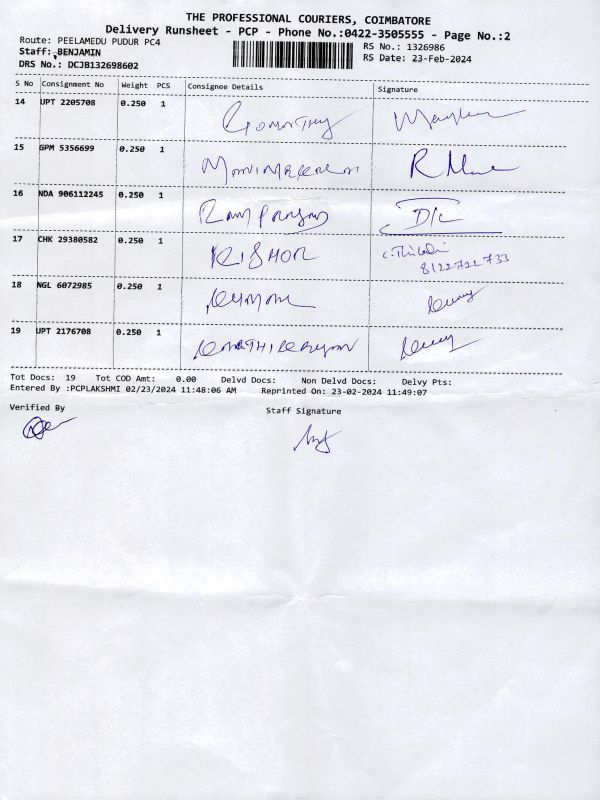 THE PROFESSIONAL COURIERS, COIMBATORE
Delivery Runsheet - PCP - Phone No.:0422-3505555 - Page No.:2
Route: PEELAMEDU PUDUR PC4
RS No.: 1326986
Staff: BENJAMIN
RS Date: 23-Feb-2024
DRS No.: DCJB132698602
S No Consignment No Weight PCS Consignee Details Signature
14 UPT 2205708 0.250 1 Gomathy
15 GPM 5356699 0.250 1 Manimegalai
16 NDA 906112245 0.250 1 Ram Prasad D/c
17 CHK 29380582 0.250 1 KISHOR
8122722733
18 NGL 6072985 0.250 1
19 UPT 2176708 0.250 1
Tot Docs: 19 Tot COD Amt: 0.00 Delvd Docs: Non Delvd Docs: Delvy Pts:
Entered By :PCPLAKSHMI 02/23/2024 11:48:06 AM Reprinted On: 23-02-2024 11:49:07
Verified By
Staff Signature